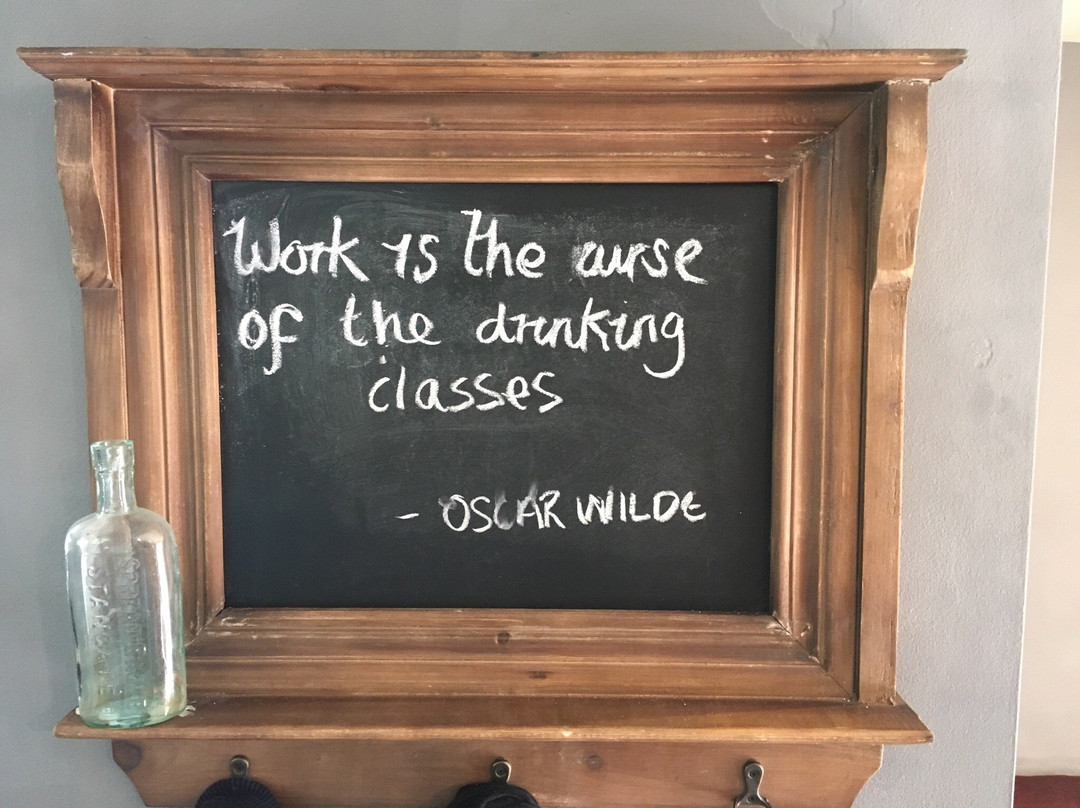 Work is the curse
of the drinking
classes
- OSCAR WILDE